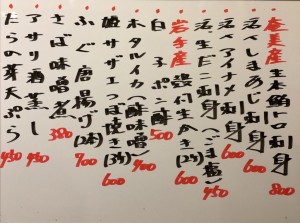 奄美産 生本鮪トロ刺身 800
活〆しまあじ刺身 600
活〆アイナメ刺身 600
活〆生だこ刺身(ごま塩) 450
岩手産 殻付生かき(2ケ) 600
白子ポン酢 500
ホタルイカ(酢味噌) 400
姫サザエつぼ焼き(3ケ) 600
ふぐ唐揚げ(2本) 700
さば味噌煮 380
アサリ酒蒸し 450
たらの芽天ぷら 450